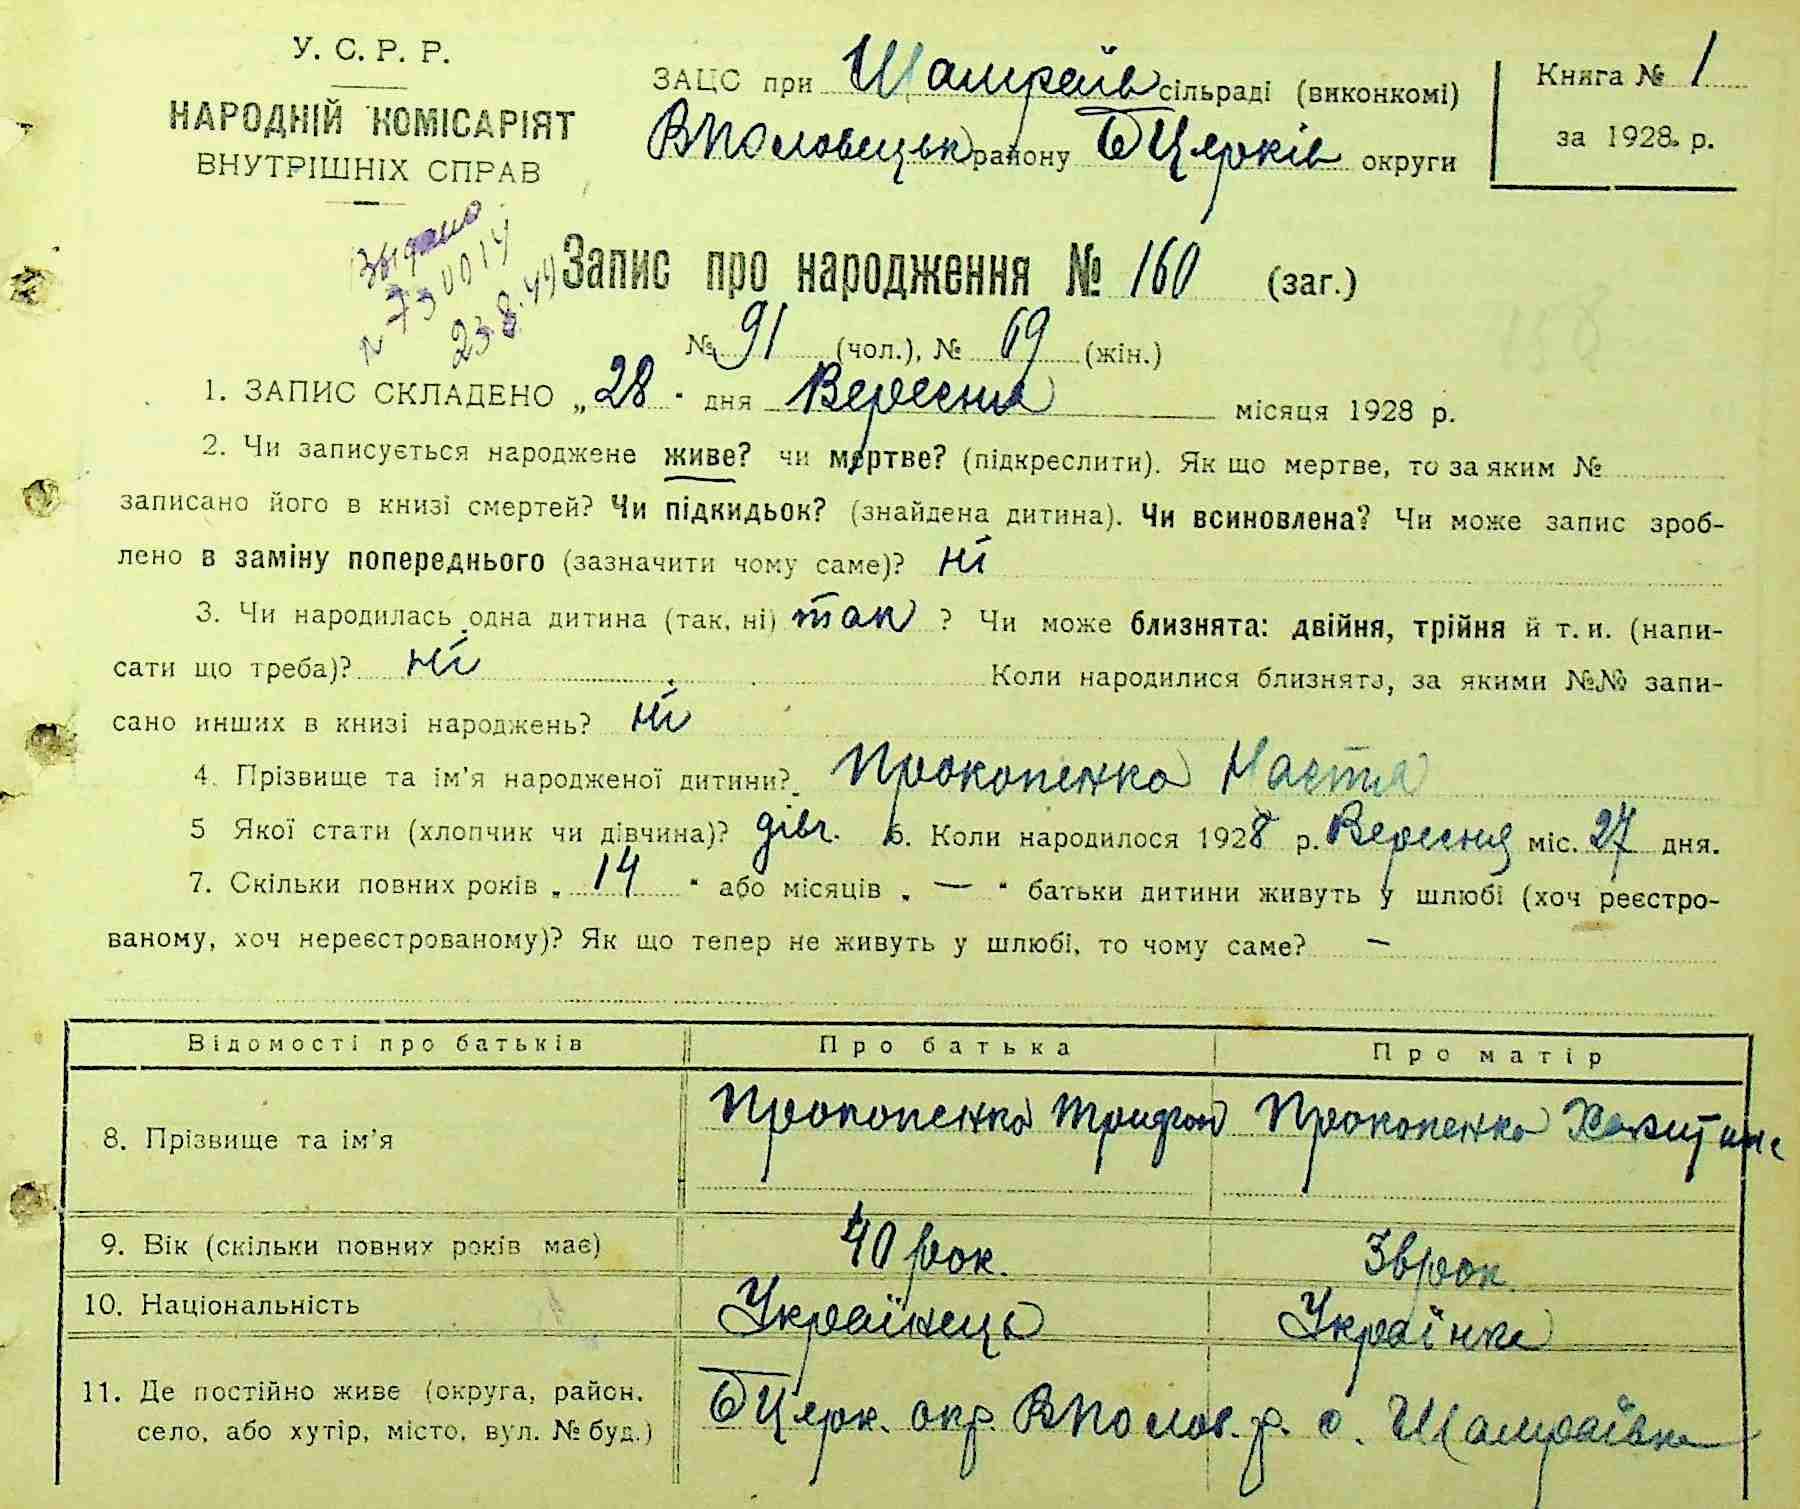 У. С. Р. Р.
НАРОДНІЙ КОМІСАРІЯТ
ВНУТРІШНІХ СПРАВ
ЗАЦС при Шамраїв сільраді (виконкомі)
ВПоловецьк району БЦерків округи
Книга № 1
за 1928. р.
Видано
№ 730014
23.8.44
Запис про народження № 160 (заг.)
№ 91 (чол.), № 69 (жін.)
1. ЗАПИС СКЛАДЕНО „28" дня Вересня місяця 1928 р.
2. Чи записується народжене живе? чи мертве? (підкреслити). Як що мертве, то за яким №
записано його в книзі смертей? Чи підкидьок? (знайдена дитина). Чи всиновлена? Чи може запис зроб-
лено в заміну попереднього (зазначити чому саме)? ні
3. Чи народилась одна дитина (так, ні) так ? Чи може близнята: двійня, трійня й т. и. (напи-
сати що треба)? ні Коли народилися близнята, за якими №№ запи-
сано инших в книзі народжень? ні
4. Прізвище та ім'я народженої дитини? Прокопенко Настя
5 Якої стати (хлопчик чи дівчина)? дівч. 6. Коли народилося 1928 р. Вересня міс. 27 дня.
7. Скільки повних років „ 14 " або місяців „ — " батьки дитини живуть у шлюбі (хоч реєстро-
ваному, хоч нереєстрованому)? Як що тепер не живуть у шлюбі, то чому саме? —
Відомості про батьків Про батька Про матір
8. Прізвище та ім'я Прокопенко Трифон Прокопенко Харитина
9. Вік (скільки повних років має) 40 рок. 36 рок.
10. Національність Українець Українка
11. Де постійно живе (округа, район, село, або хутір, місто, вул. № буд.) БЦерк. окр. ВПолов. р. с. Шамраївка